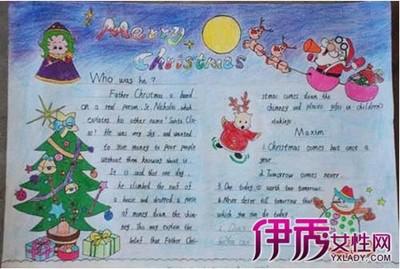 Merry
Christmas
Who was he?
Father Christmas is based
on a real person, St. Nicholas which
explains his other name "Santa Cla-
us". He was very shy and wanted
to give money to poor people
without them knowing about it.
It is said that one day,
he climbed the roof of
a house and dropped a purse
of money down the chim-
ney. This may explain the
belief that Father Chri-
stmas comes down the
chimney and places gifts in children's
stockings
Maxim
1. Christmas comes but once a
year.
2. Tomorrow comes never.
3. One today is worth two tomorrows.
4. Never defer till tomorrow that
which you can do today.
伊秀女性网
YXLADY.COM